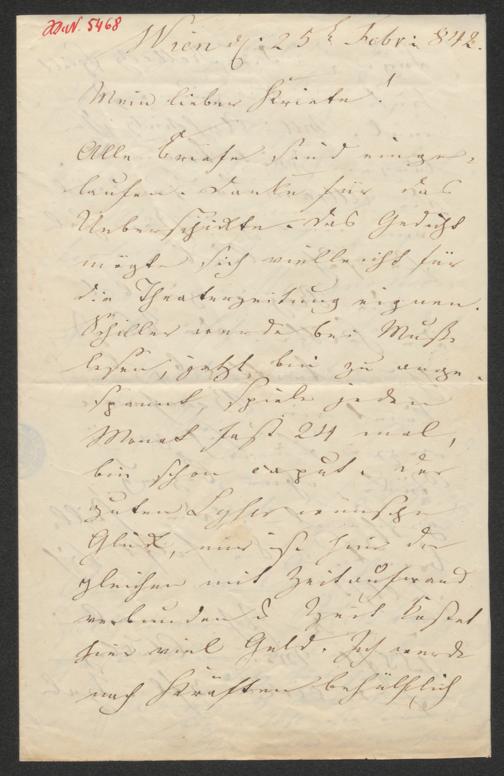 I.N. 5468
Wien d: 25t Febr: 842.
Mein lieber Kriete!
Alle Briefe sind einge-
laufen. Danke für das
Ueberschikte. Das Gedicht
mögte sich vielleicht für
die Theaterzeitung eignen.
Schiller werde bei Muße
lesen, jetzt bin zu ange-
spannt spiele jeden
Monat fast 24 mal,
bin schon caput. Der
guten Lyser wünsche
Glück, nur ist hier der
gleichen mit Zeitaufwand
verbunden & Zeit kostet
hier viel Geld. Ich werde
nach Kräften behülflich